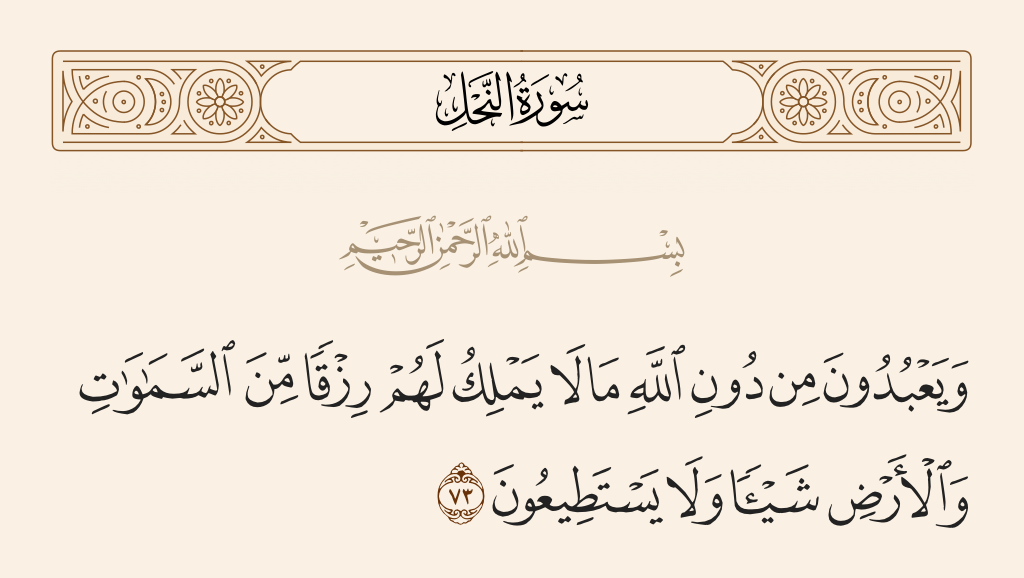 سُورَةُ النَّحْلِ
بِسْمِ ٱللَّهِ ٱلرَّحْمَٰنِ ٱلرَّحِيمِ
وَيَعْبُدُونَ مِن دُونِ ٱللَّهِ مَا لَا يَمْلِكُ لَهُمْ رِزْقًا مِّنَ ٱلسَّمَٰوَٰتِ
وَٱلْأَرْضِ شَيْـًٔا وَلَا يَسْتَطِيعُونَ ٧٣